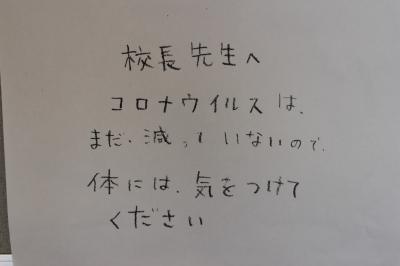 校長先生へ
コロナウイルスは、
まだ、減っていないので、
体には、気をつけて
ください